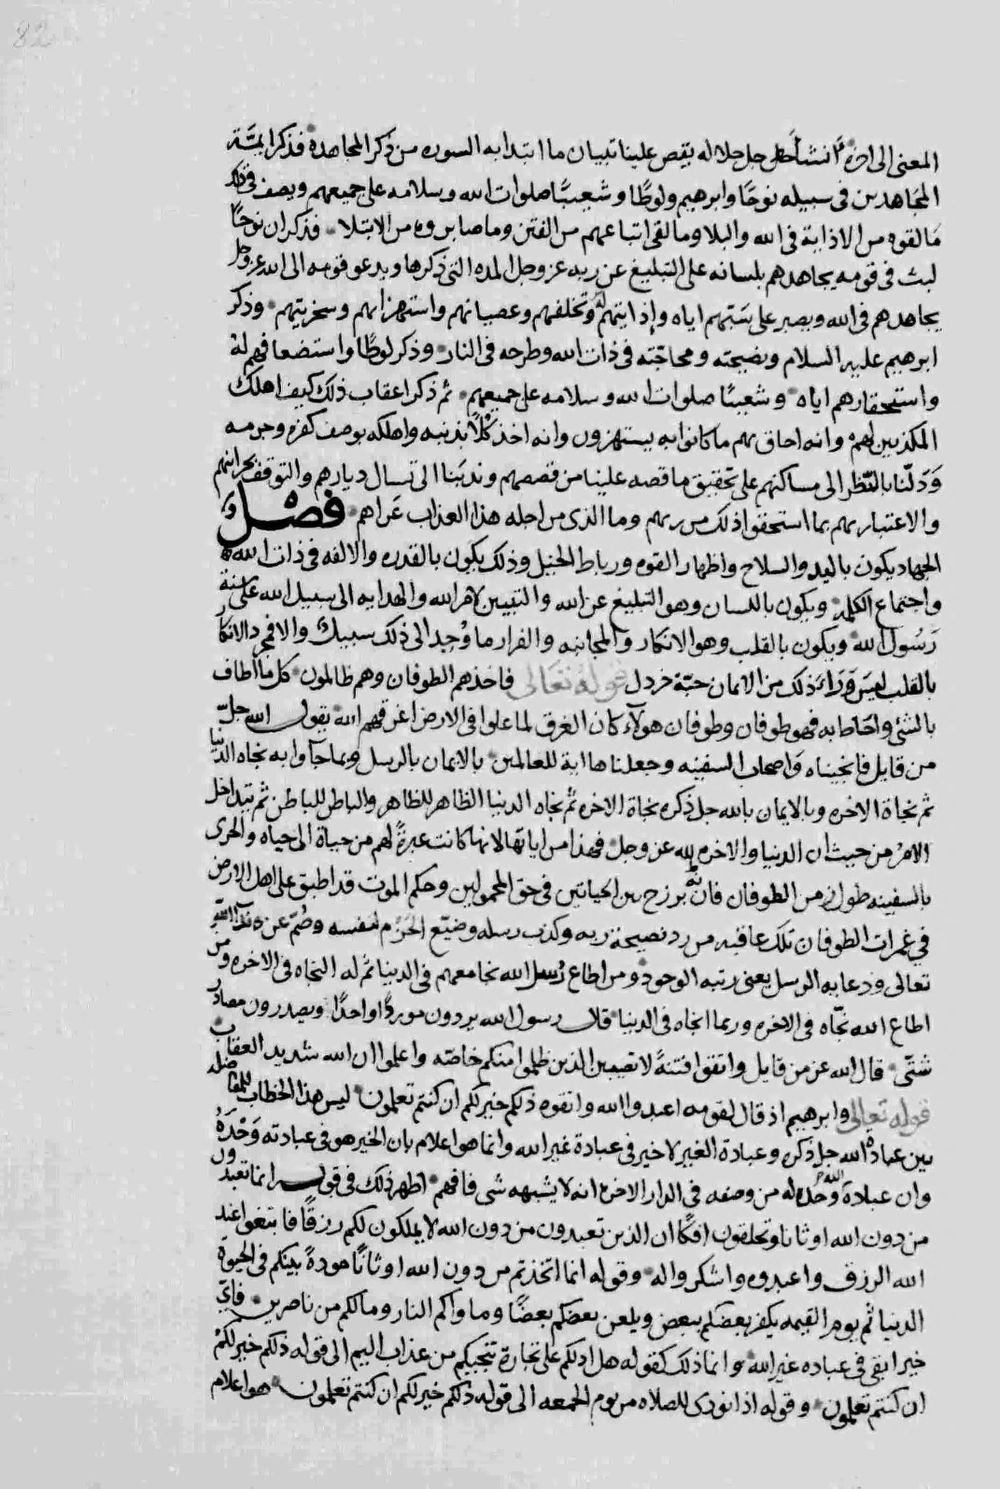 82
المعنى الى اخره ثم انشأ جل جلاله يقص علينا تبيان ما ابتدا به السوره من ذكر المجاهدة فذكر ايمّة
المجاهدين في سبيله نوحًا وابرهيم ولوطًا وشعيبًا صلوات الله وسلامه على جميعهم ويصف في ذلك
ما لقوه من الاذاية في الله والبلا وما لقى اتباعهم من الفتن وما صابروه من الابتلا فذكر ان نوحًا
لبث في قومه يجاهدهم بلسانه على التبليغ عن ربه عز وجل المده التي ذكرها ويدعو قومه الى الله عز وجل
يجاهدهم في الله ويصبر على شتمهم اياه واذايتهم له وتخلفهم وعصيانهم واستهزائهم وسخريتهم وذكر
ابرهيم عليه السلام ونصيحته ومحاجّته في ذات الله وطرحه في النار وذكر لوطًا واستضعافهم له
واستحقارهم اياه وشعيبًا صلوات الله وسلامه على جميعهم ثم ذكر اعقاب ذلك كيف اهلك
المكذبين لهم وانه احاق بهم ما كانوا به يستهزون وانه اخذ كلًا بذنبه واهلكه بوصف كفره وجرمه
ودلّنا بالنّظر الى مساكنهم على تحقيق ما قصه علينا من قصصهم وندبنا الى تسال ديارهم والتوقف بحراثهم
والاعتبار بهم بما استحقوا ذلك من ربهم وما الذى من اجله هذا العذاب عراهم فصل و
الجهاد يكون باليد والسلاح واظهار القوه ورباط الخيل وذلك يكون بالقدره والالفه في ذات الله
واجتماع الكلمة ويكون باللسان وهو التبليغ عن الله والتبيين لامر الله والهدايه الى سبيل الله على سنة
رسول الله ويكون بالقلب وهو الانكار والمجانبه والفرار ما وُجد الى ذلك سبيلا والا فمجرد الانكار
بالقلب ليس وراء ذلك من الايمان حبّة خردل قوله تعالى فاخذهم الطوفان وهم ظالمون كل ما اطاف
بالشئ واحاط به فهو طوفان وطوفان هولآء كان الغرق لما علوا في الارض اغرقهم الله يقول الله جلّ
من قايل فانجيناه واصحاب السفينه وجعلناها اية للعالمين بالايمان بالرسل وبما جآوا به نجاه الدنيا
ثم نجاة الاخره وبالايمان بالله جل ذكره نجاة الاخره ثم نجاه الدنيا الظاهر للظاهر والباطن للباطن ثم تبداخل
الامر من حيث ان الدنيا والاخره لله عز وجل فهذا من اياتها لانها كانت عبرةً لهم من حياة الى حياه والجرى
بالسفينه طول زمن الطوفان فان ثم برزح بين الحياتين في حق المحمولين وحكم الموت قد اطبق على اهل الارض
في غمرات الطوفان تلك عاقبه من رد نصيحة ربه وكذب رسله وضيّع الحزم لنفسه وصُمّ عن ندآ الله
تعالى ودعا به الرسل يعنى رتبه الوجود ومن اطاع رُسل الله نجا معهم في الدنيا ثم له النجاه في الاخره ومن
اطاع الله نجّاه في الاخره وربما انجاه في الدنيا قال رسول الله يردون موردًا واحدًا ويصدرون مصادر
شتّى قال الله عز من قايل واتقوا فتنةً لا تصيبن الذين ظلموا منكم خاصّه واعلموا ان الله شديد العقاب
قوله تعالى وابرهيم اذ قال لقومه اعبدوا الله واتقوه ذلكم خير لكم ان كنتم تعلمون ليس هذا الخطاب للمفاضله
بين عبادة الله جل ذكره وعبادة الغير لا خير في عبادة غير الله وانما هو اعلام بان الخير هو في عبادته وحدَهُ
وان عبادة الله وحده له من وصفه في الدار الاخره انه لا يشبهه شى فافهم اظهر ذلك في قوله انما تعبدون
من دون الله اوثانا وتخلقون افكًا ان الذين تعبدون من دون الله لا يملكون لكم رزقًا فابتغوا عند
الله الرزق واعبدوه واشكروا له وقوله انما اتخذتم من دون الله اوثانًا مودةً بينكم في الحيوة
الدنيا ثم يوم القيمه يكفر بعضكم ببعض ويلعن بعضكم بعضًا وماواكم النار ومالكم من ناصرين فايّ
خير ابقى في عباده غير الله وانما ذلك كقوله هل ادلكم على تجارة تنجيكم من عذاب اليم الى قوله ذلكم خير لكم
ان كنتم تعلمون وقوله اذا نودى للصلاه من يوم الجمعه الى قوله ذلكم خير لكم ان كنتم تعلمون هو اعلام